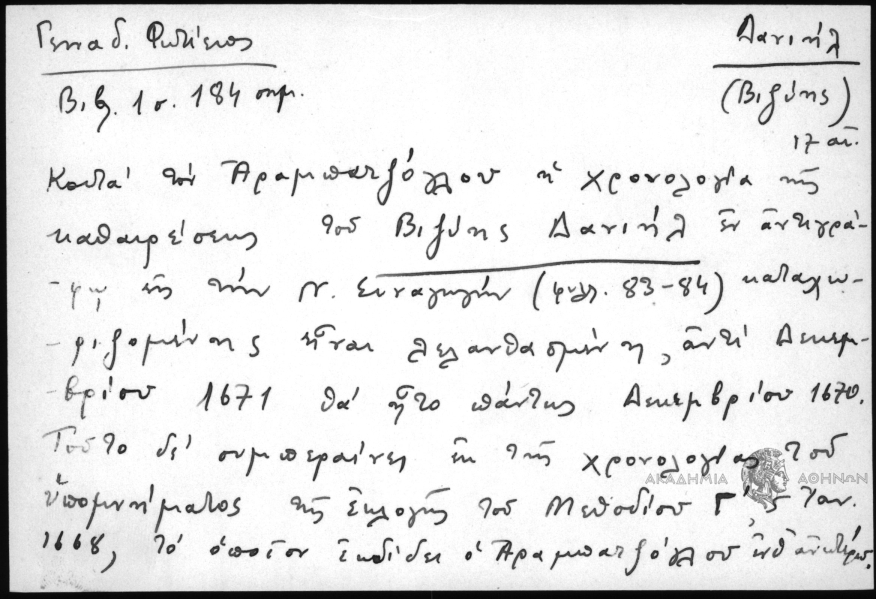 Γενναδ. Φωτίειος
Βιβλ. 1 σ. 184 σημ.
Δανιήλ
(Βιζύης)
17 αἰ.
Κατὰ τὸν Ἀραμπατζόγλου ἡ χρονολογία τῆς
καθαιρέσεως τοῦ Βιζύης Δανιήλ ἐν ἀντιγρά-
-φῳ εἰς τὴν Ν. Συναγωγὴν (φυλλ. 83-84) καταχω-
-ριζομένης εἶναι λελανθασμένη, ἀντὶ Δεκεμ-
-βρίου 1671 θὰ ἦτο πάντως Δεκεμβρίου 1670.
Τοῦτο δὲ συμπεραίνει ἐκ τῆς χρονολογίας τοῦ
ὑπομνήματος τῆς ἐκλογῆς τοῦ Μεθοδίου Γ´, 5 Ἰαν.
1668, τὸ ὁποῖον ἐκδίδει ὁ Ἀραμπατζόγλου ἔνθ' ἀνωτέρω.
ΑΚΑΔΗΜΙΑ ΑΘΗΝΩΝ